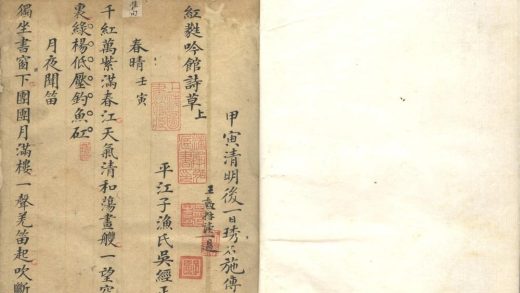 甲寅清明後一日
紅蕤吟館詩草上
平江子漁氏吳經
春晴 壬寅
千紅萬紫滿春江天氣清和蕩畫艭一望空
裏綠楊低壓釣魚矼
月夜聞笛
獨坐書窗下團團月滿樓一聲羌笛起吹斷